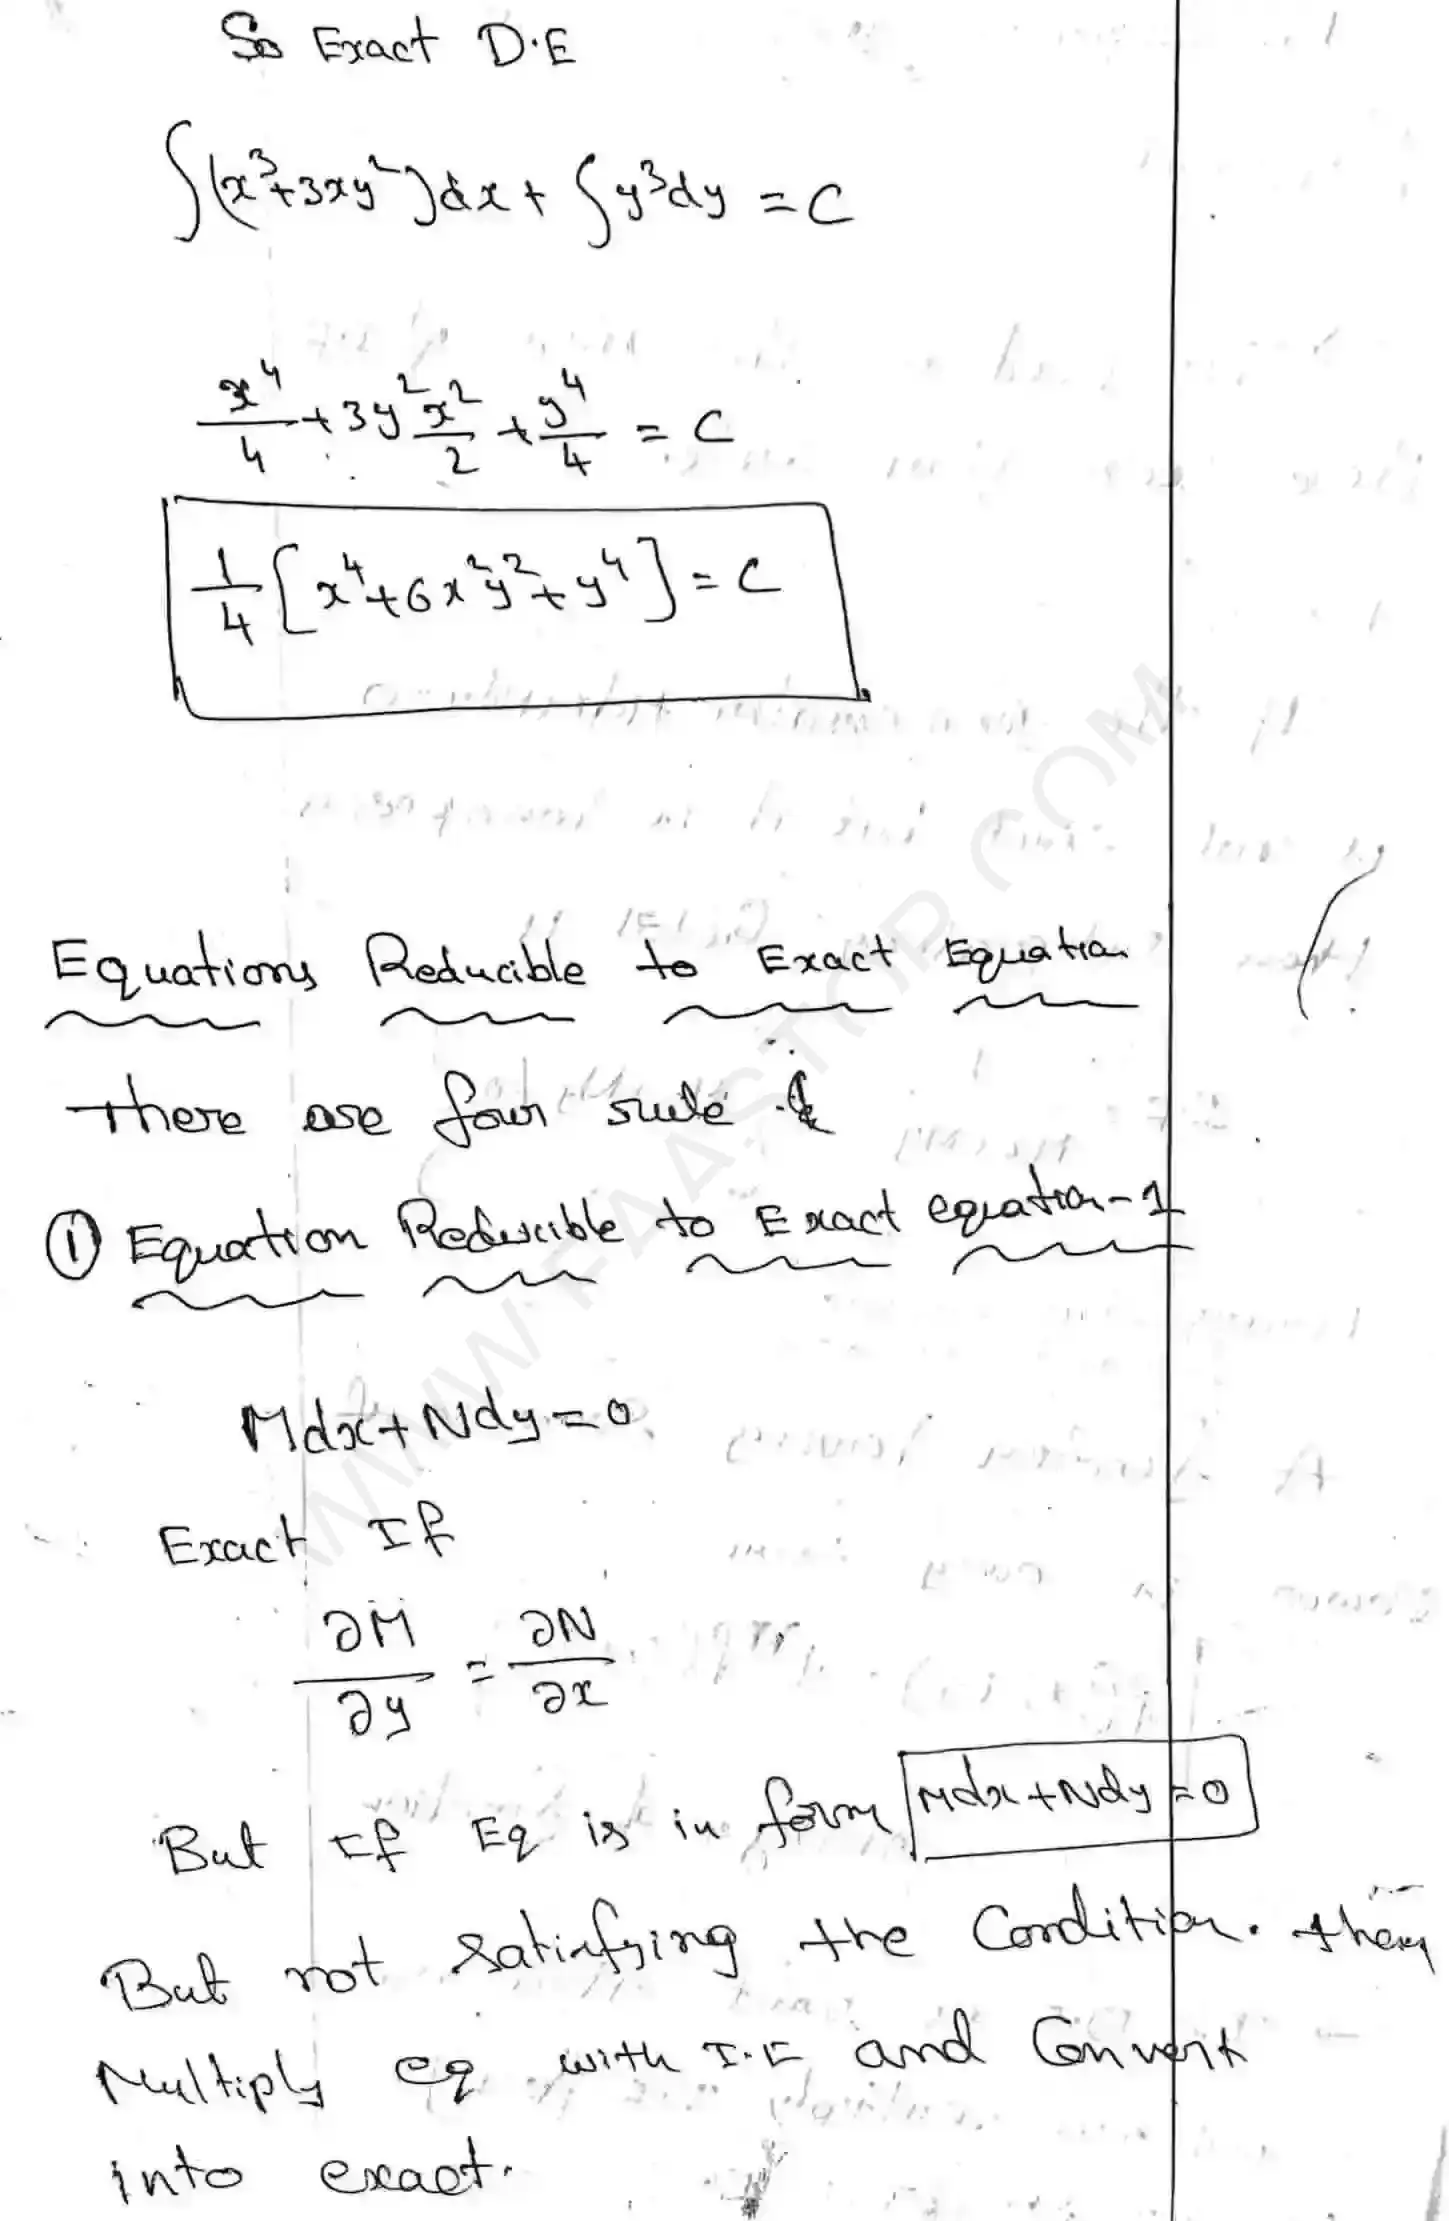 So Exact D.E
∫(x³+3xy²)dx + ∫y³dy = C
x⁴/4 + 3y² x²/2 + y⁴/4 = C
1/4 [x⁴+6x²y²+y⁴] = C
Equations Reducible to Exact Equation
There are four rule
① Equation Reducible to Exact equation-1
Mdx+Ndy=0
Exact If
∂M/∂y = ∂N/∂x
But If Eq is in form Mdx+Ndy=0
But not satisfying the Condition. then
Multiply eq with I.F and Convert
into exact.
WWW.FAASTOP.COM